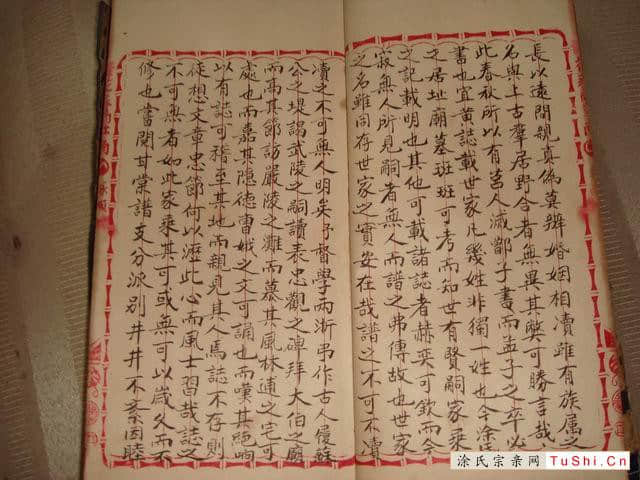 長以遠間親真偽莫辦婚姻相瀆雖有族属之
名與上古羣居野合者無異其獘可勝言哉
此春秋所以有莒人滅鄫子書而孟子之卒必
書也宜黄誌載世家凡幾姓非獨一姓也今塗氏
之居址廟墓班班可考而知世有賢嗣家乘
之記載明也其他可載諸誌者赫奕可欽而今
寂無所見嗣者無人而譜之弗傳故也世家
之名雖同存世家之實安在哉譜之不可不續
瀆之不可無人明矣予督學兩淅弔作古人
公之堤謁武陵之嗣讀表忠觀之碑拜大伯之廟
而高其節訪嚴陵之灘而慕其風林逋之宅可
處也而嘉其隐德曹娥之文可誦也而嘆其純
以有誌可稽至其地而親見其人焉誌不存則
徒想文章忠節何以瀝此心而風士習哉誌之
不可無者如此家乘其可或無可以歳久而不
修也嘗閱甘棠譜支分派别井井不紊因睦
涂氏宗亲网 TuShi.Cn